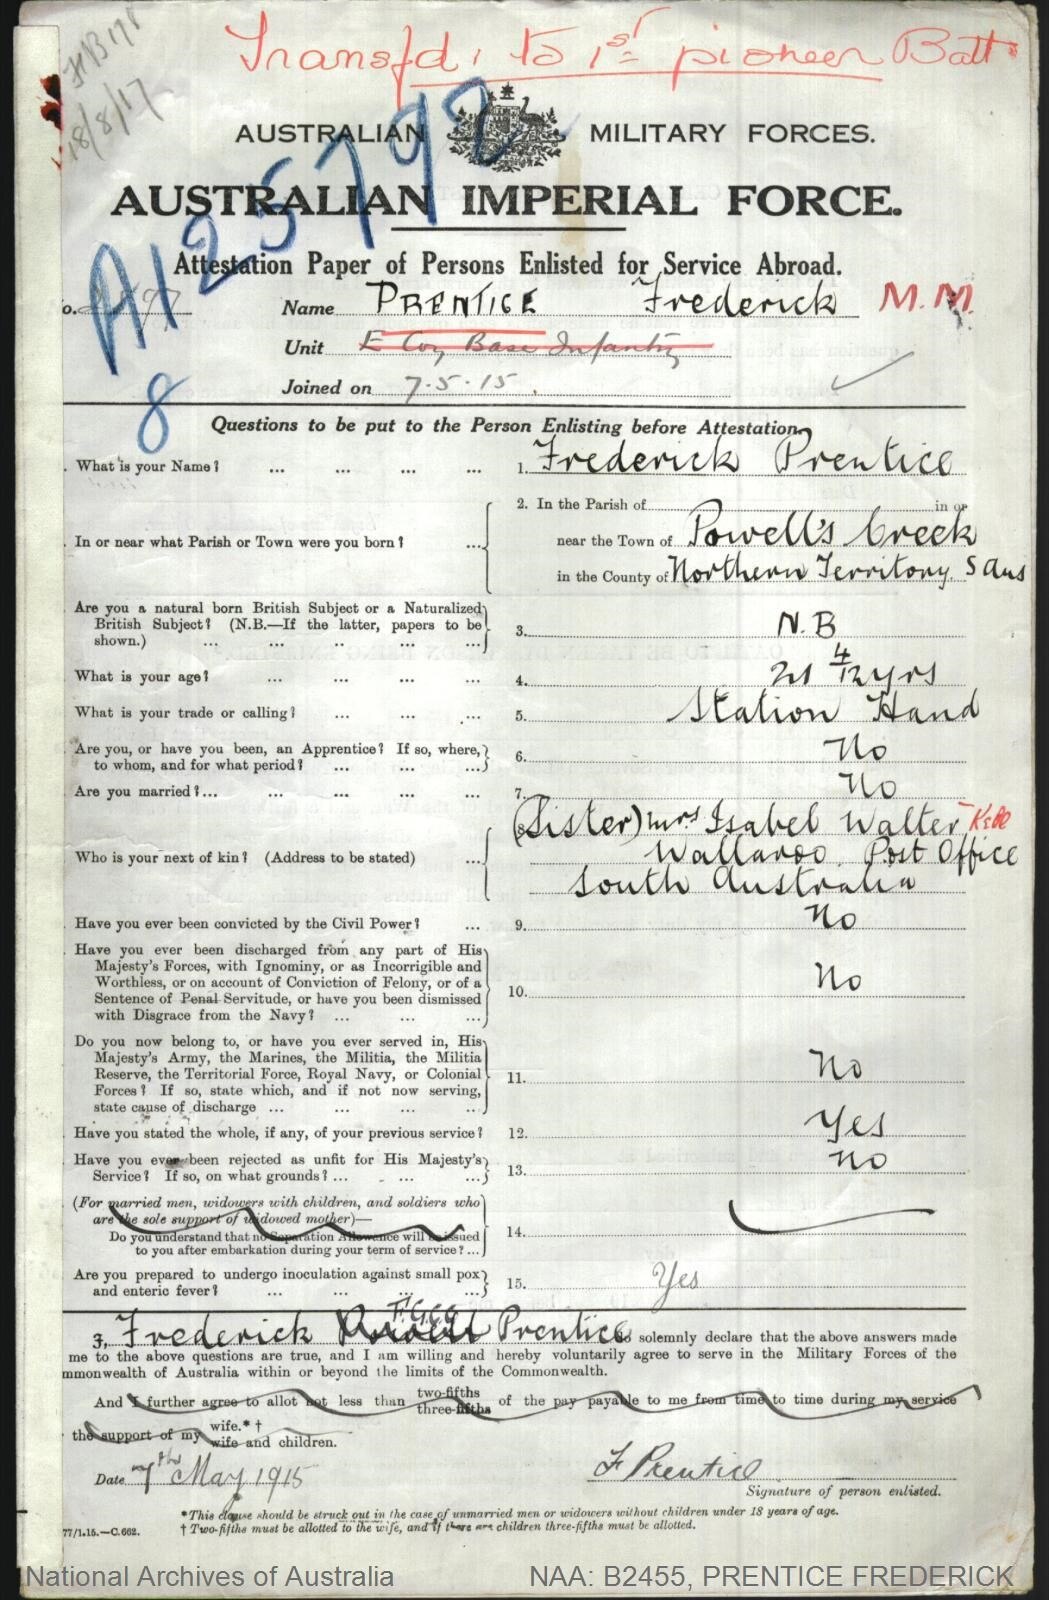 Transfd. to 1st pioneer Batt
18/8/17
AUSTRALIAN MILITARY FORCES.
A125792
AUSTRALIAN IMPERIAL FORCE.
Attestation Paper of Persons Enlisted for Service Abroad.
o. Name PRENTICE Frederick M.M.
Unit E Coy Base Infantry
Joined on 7.5.15
8
Questions to be put to the Person Enlisting before Attestation.
. What is your Name? ... ... ... ... 1. Frederick Prentice
2. In the Parish of in or
. In or near what Parish or Town were you born? ... near the Town of Powell's Creek
in the County of Northern Territory S Aus
Are you a natural born British Subject or a Naturalized
British Subject? (N.B.—If the latter, papers to be
shown.) ... ... ... ... ... 3. N.B
What is your age? ... ... ... ... 4. 21 4/12 yrs
What is your trade or calling? ... ... ... 5. Station Hand
Are you, or have you been, an Apprentice? If so, where,
to whom, and for what period? ... ... ... 6. No
Are you married?... ... ... ... ... 7. No
(Sister) Mrs Isabel Walter
Who is your next of kin? (Address to be stated) ... Wallaroo Post Office
South Australia
Have you ever been convicted by the Civil Power? ... 9. No
Have you ever been discharged from any part of His
Majesty's Forces, with Ignominy, or as Incorrigible and
Worthless, or on account of Conviction of Felony, or of a
Sentence of Penal Servitude, or have you been dismissed
with Disgrace from the Navy? ... ... ... 10. No
Do you now belong to, or have you ever served in, His
Majesty's Army, the Marines, the Militia, the Militia
Reserve, the Territorial Force, Royal Navy, or Colonial
Forces? If so, state which, and if not now serving,
state cause of discharge ... ... ... ... 11. No
Have you stated the whole, if any, of your previous service? 12. Yes
Have you ever been rejected as unfit for His Majesty's
Service? If so, on what grounds? ... ... ... 13. No
(For married men, widowers with children, and soldiers who
are the sole support of widowed mother)—
Do you understand that no Separation Allowance will be issued
to you after embarkation during your term of service? ... 14.
Are you prepared to undergo inoculation against small pox
and enteric fever? ... ... ... ... 15. Yes
I, Frederick Prentice do solemnly declare that the above answers made
me to the above questions are true, and I am willing and hereby voluntarily agree to serve in the Military Forces of the
mmonwealth of Australia within or beyond the limits of the Commonwealth.
And I further agree to allot not less than two-fifths three-fifths of the pay payable to me from time to time during my service
the support of my wife.* † wife and children.
Date 7th May 1915 F Prentice
Signature of person enlisted.
*This clause should be struck out in the case of unmarried men or widowers without children under 18 years of age.
77/1.15.—C.662. † Two-fifths must be allotted to the wife, and if there are children three-fifths must be allotted.
National Archives of Australia NAA: B2455, PRENTICE FREDERICK